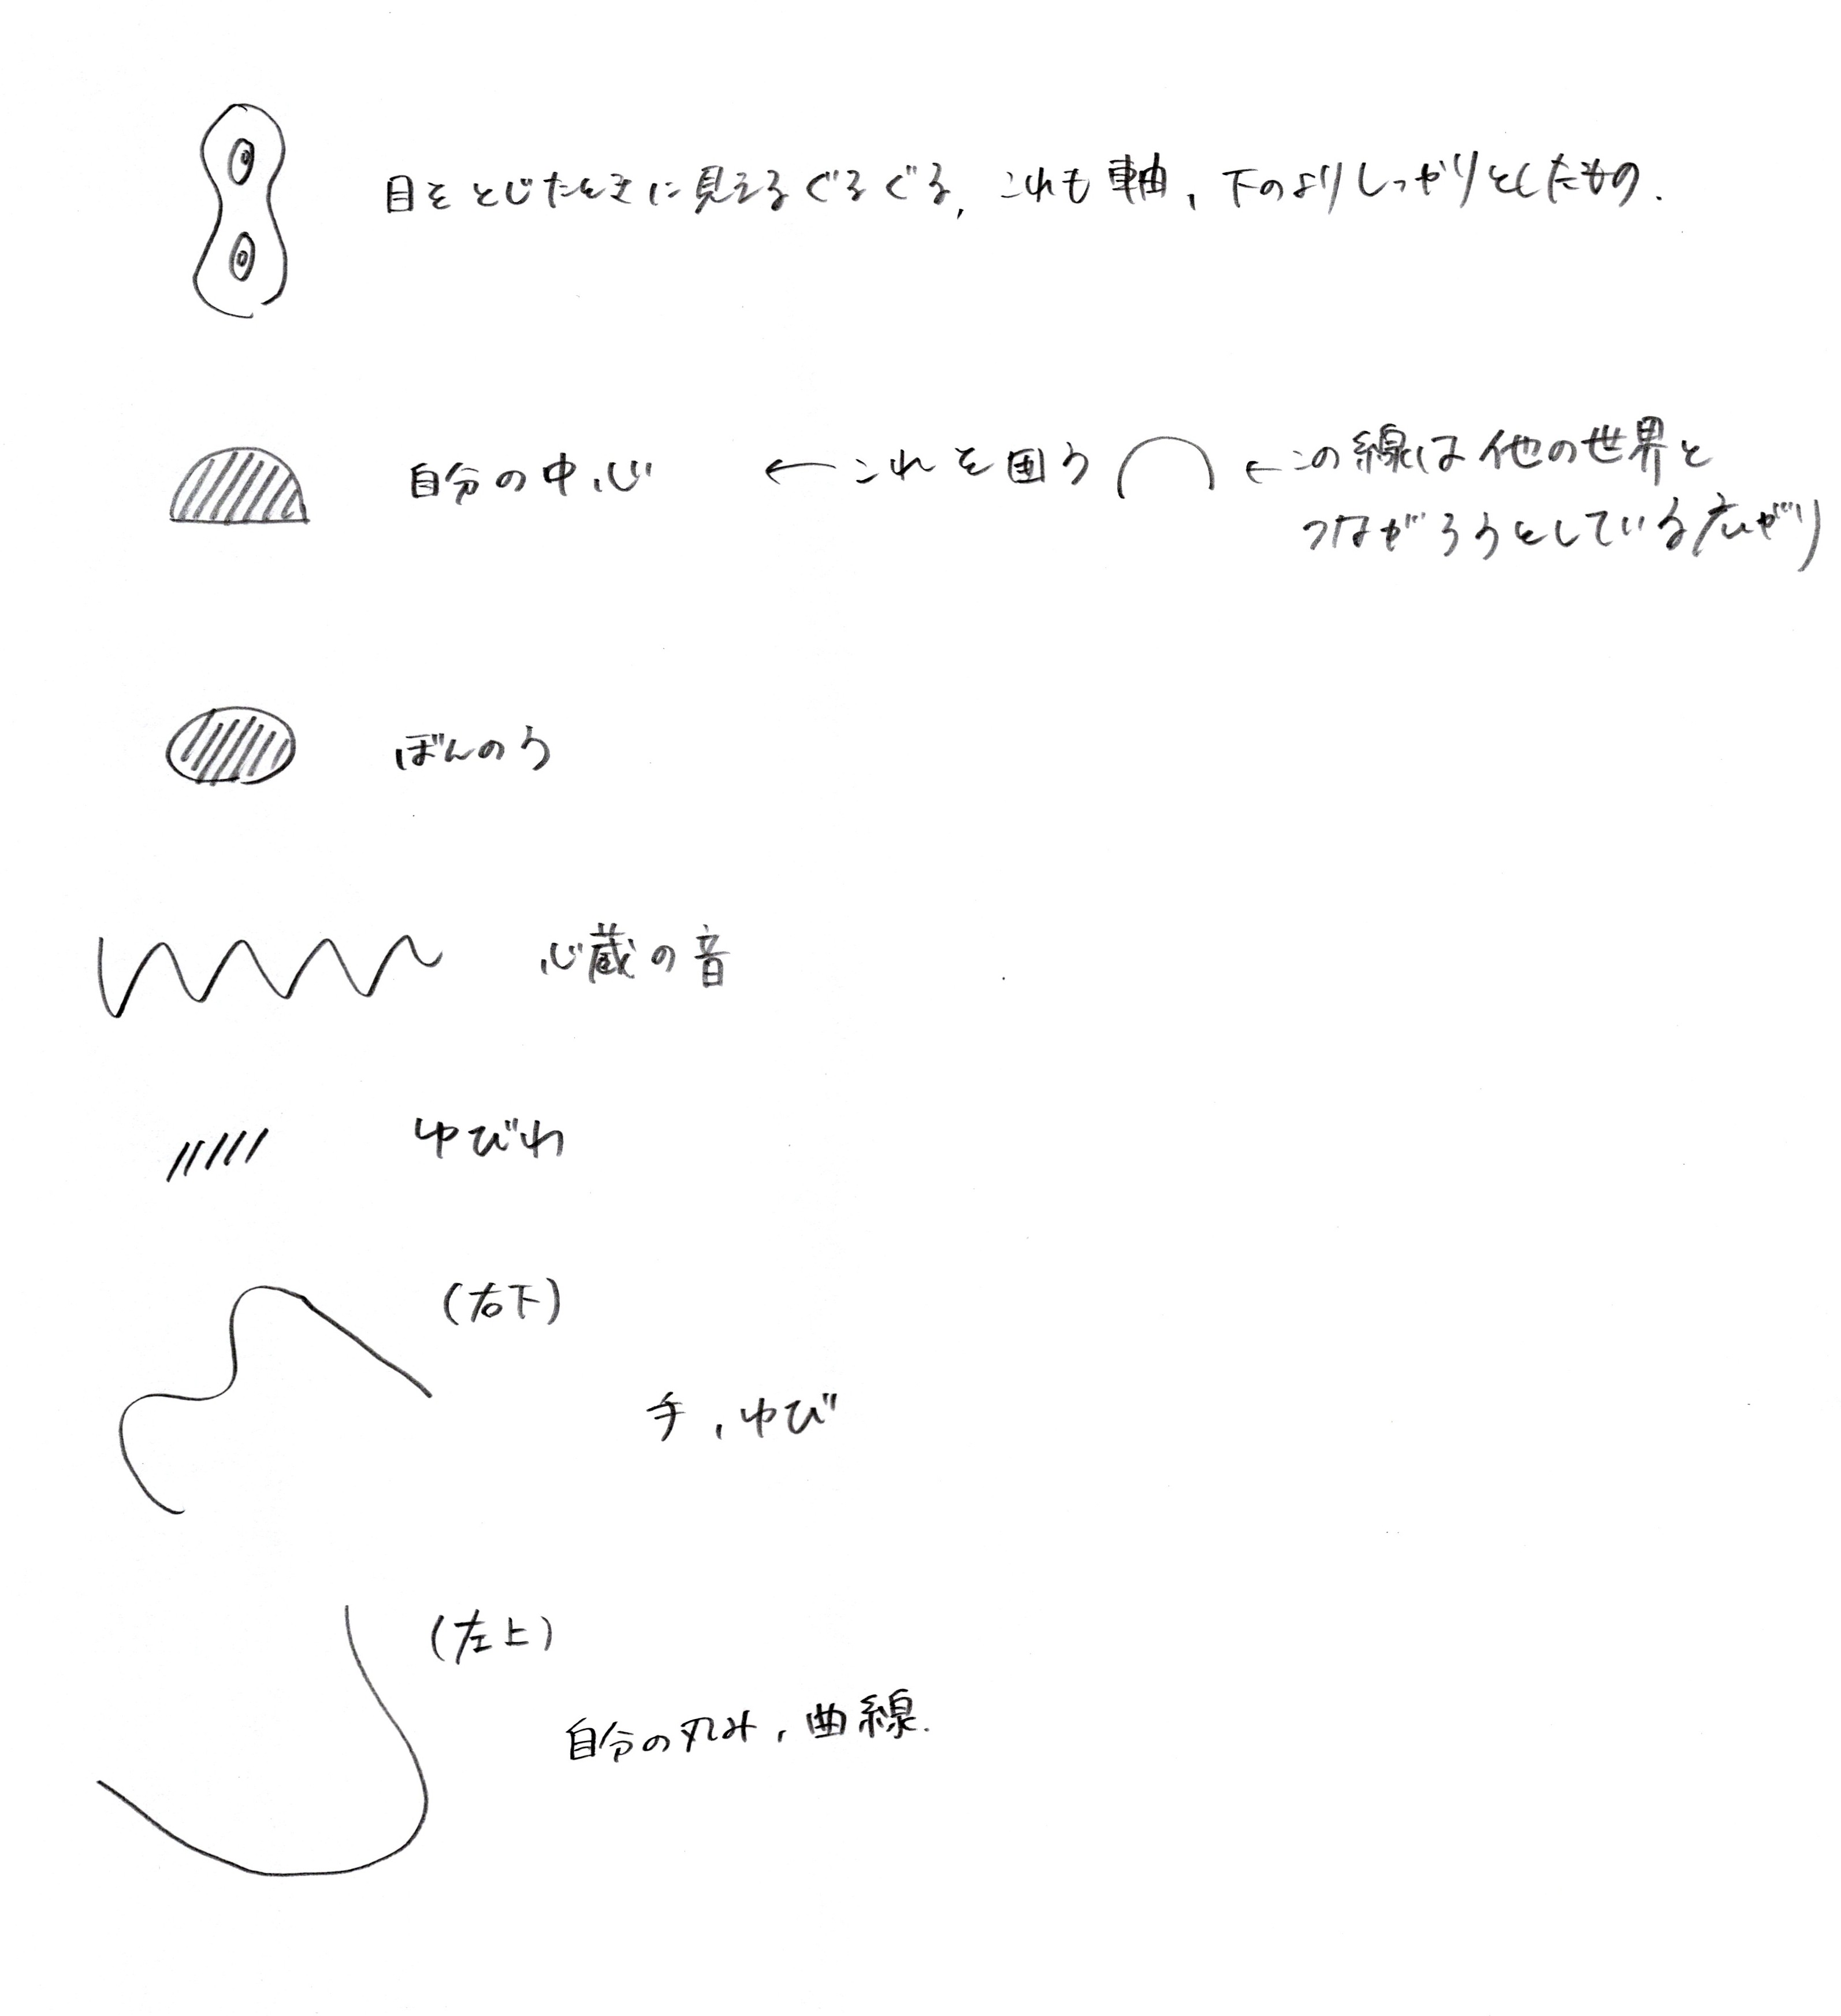 目をとじたときに見えるぐるぐる、これも軸、下のよりしっかりとしたもの.
自分の中心 ←これを囲う ←この線は他の世界と
つながろうとしている広がり
ぼんのう
心蔵の音
ゆびわ
(右下)
手、ゆび
(左上)
自分の丸み、曲線.